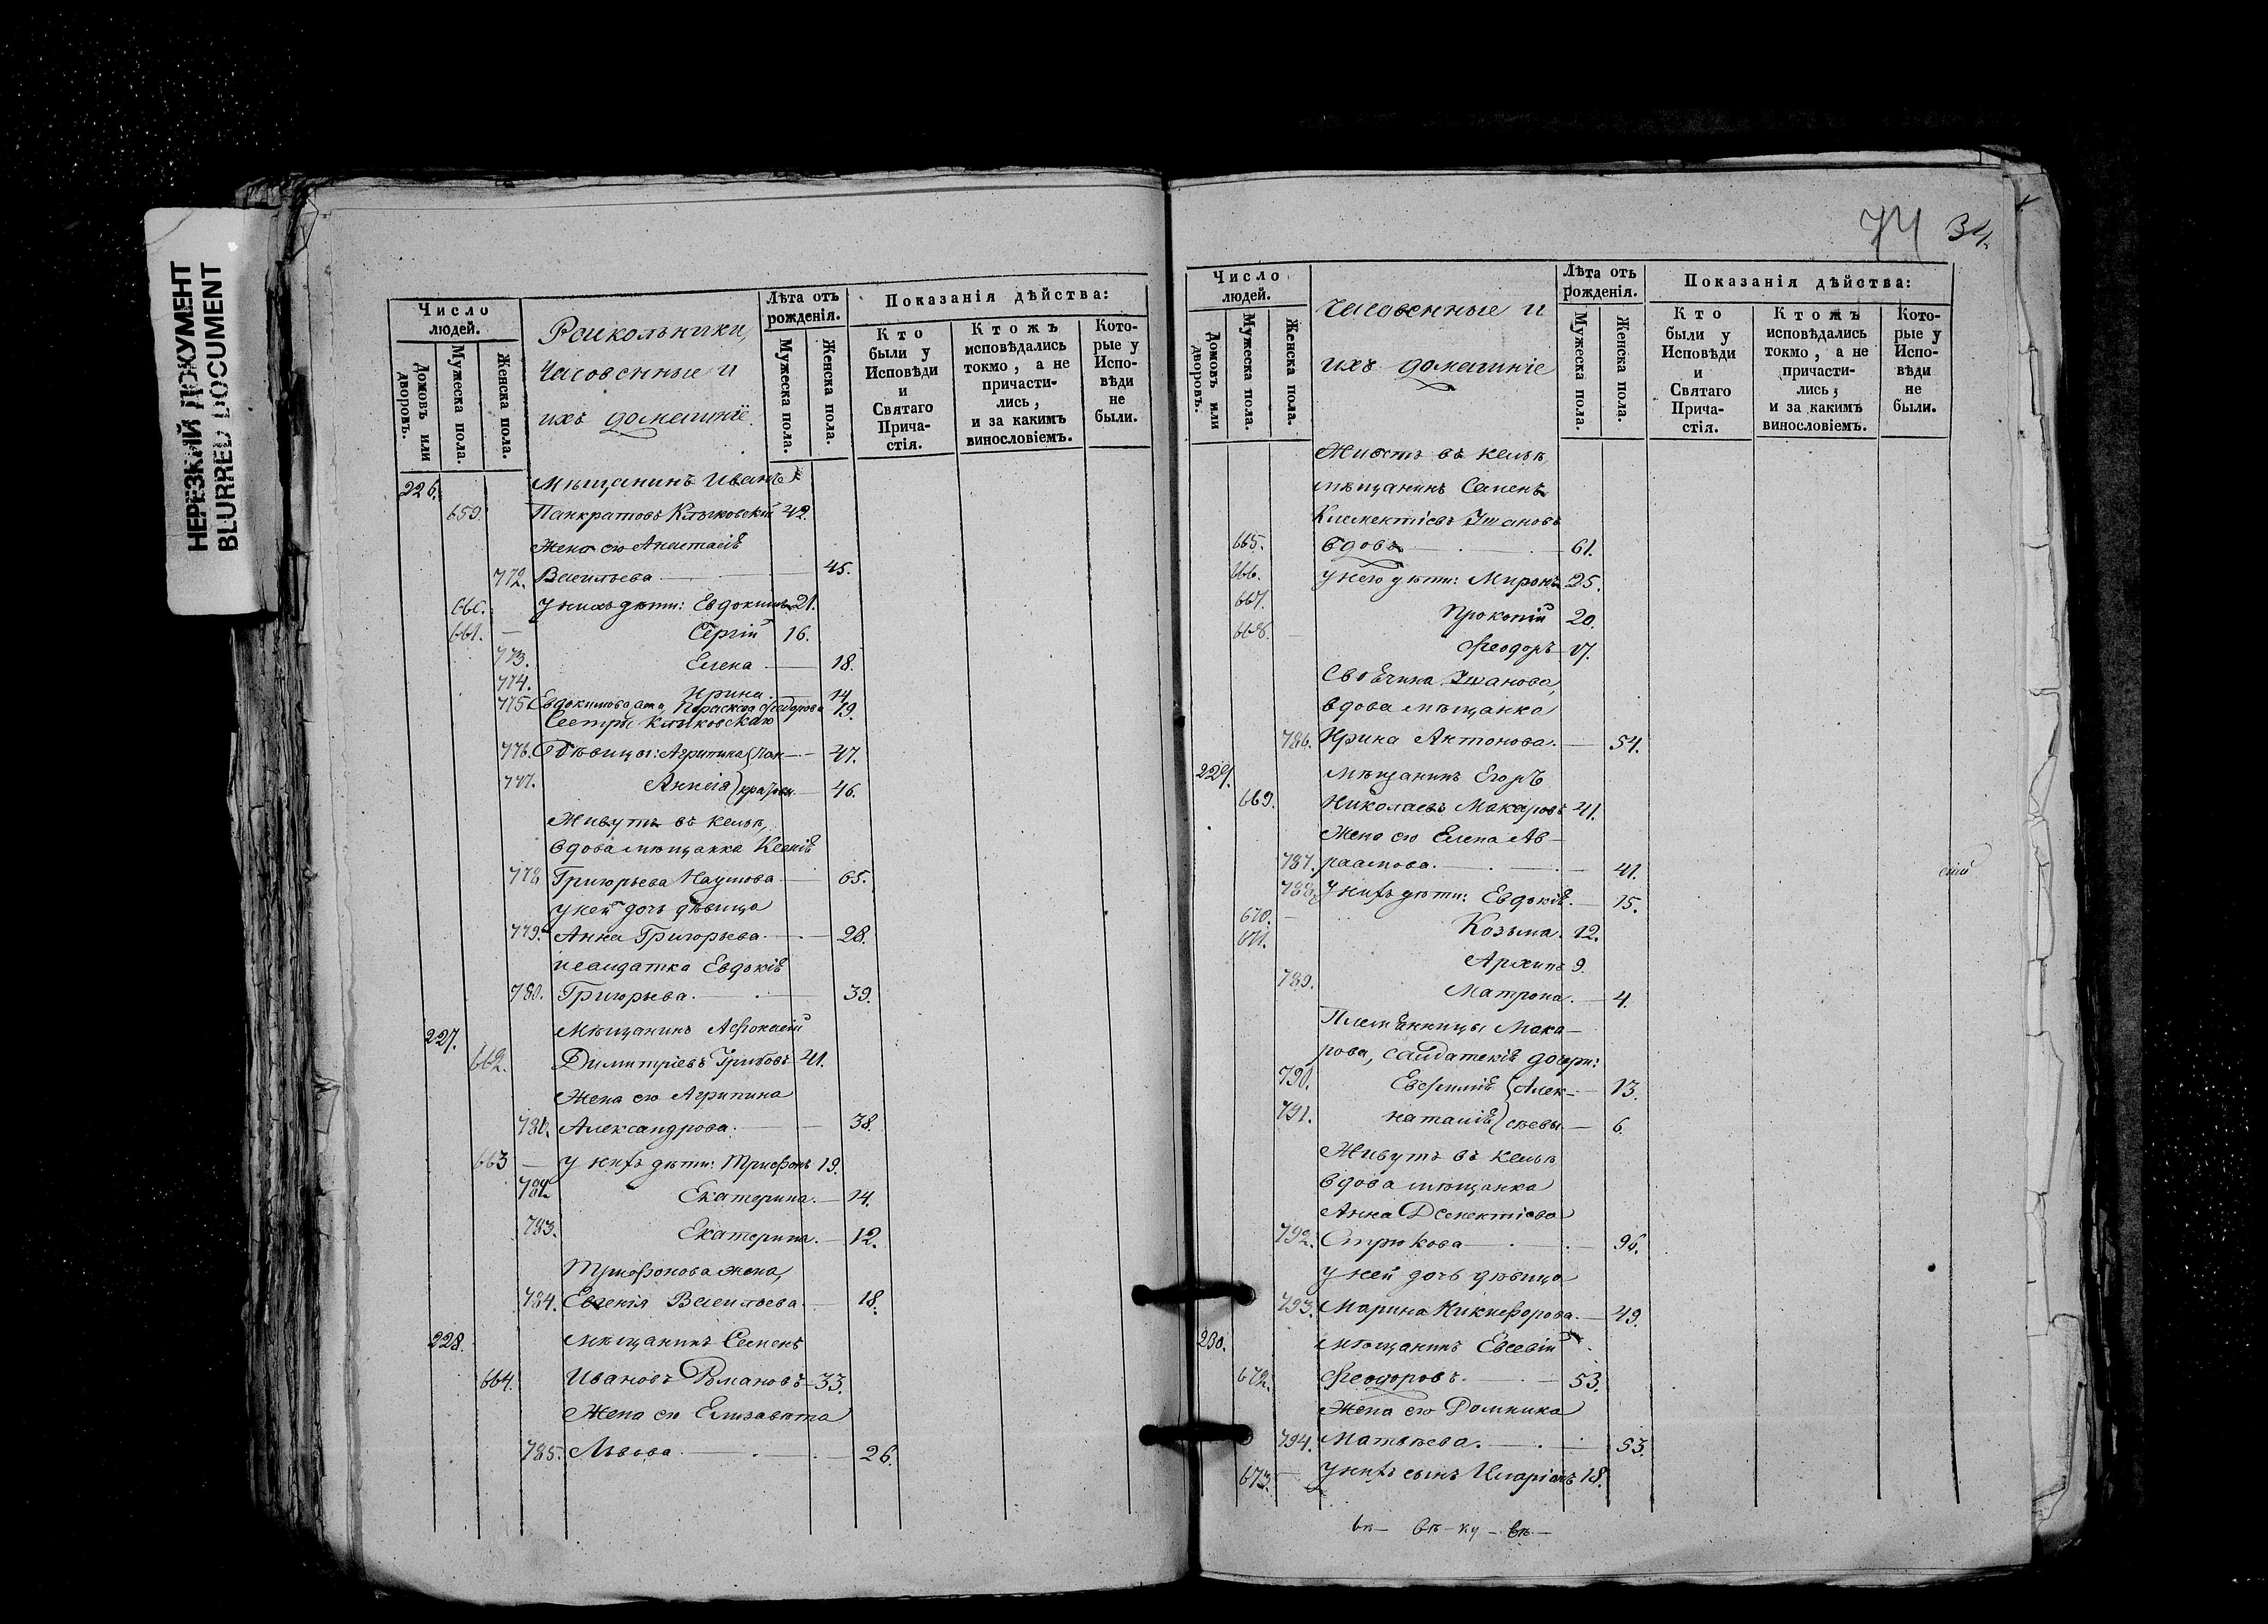 НЕРЕЗКИЙ ДОКУМЕНТ
BLURRED DOCUMENT
Число людей.
Домовъ или дворовъ.
Мужеска пола.
Женска пола.
Раскольники,
Часовенные и
ихъ домашніе.
Лѣта отъ рожденія.
Мужеска пола.
Женска пола.
Показанія дѣйства:
Кто были у Исповѣди и Святаго Прича-стія.
Ктожъ исповѣдались токмо, а не причасти-лись, и за какимъ винословіемъ.
Кото-рые у Испо-вѣди не были.
226. Мѣщанинъ Иванъ
659. Панкратовъ Клыковскій 42.
Жена его Анастасія
772. Васильева 45.
660. У нихъ дѣти: Евдокимъ 21.
661. — Сергій 16.
773. Елена 18.
774. Ирина 14
775 Евдокимова жена, Параскева Феодорова 19.
Сестры Клыковскаго
776. Дѣвицы: Агрипина (Пан- 47.
777. Анисія) кратовы 46.
Живутъ въ кельѣ,
вдова мѣщанка Ксенія
778 Григорьева Наумова 65.
у ней дочь дѣвица
779. Анна Григорьева 28.
и салдатка Евдокія
780. Григорьева 39.
227. Мѣщанинъ Афонасій
662. Димитріевъ Грибовъ 41.
Жена его Агрипина
781. Александрова 38.
663 — У нихъ дѣти: Трифонъ 19.
782 Екатерина 14.
783. Екатерина 12.
Трифонова жена,
784. Евгенія Васильева 18.
228. Мѣщанинъ Семенъ
664. Ивановъ Романовъ 33.
Жена его Елизавета
785. Львова 26.
74 34.
Число людей.
Домовъ или дворовъ.
Мужеска пола.
Женска пола.
Часовенные и
ихъ домашніе
Лѣта отъ рожденія.
Мужеска пола.
Женска пола.
Показанія дѣйства:
Кто были у Исповѣди и Святаго Прича-стія.
Ктожъ исповѣдались токмо, а не причасти-лись, и за какимъ винословіемъ.
Кото-рые у Испо-вѣди не были.
Живетъ въ кельѣ,
мѣщанинъ Семенъ
Климентіевъ Ушановъ
665. вдовъ 61.
666. У него дѣти: Миронъ 25.
667. Прокопій 20.
668. Феодоръ 17.
Ушанова,
вдова мѣщанка
786. Ирина Антонова 54.
229. Мѣщанинъ Егоръ
669. Николаевъ Макаровъ 41.
Жена его Елена Ав-
787. раамова 41.
788. У нихъ дѣти: Евдокія 15.
670. — Козьма 12.
671. Архипъ 9.
789. Матрона 4.
Племянницы Мака-
рова, салдатскія дочери:
790. Евфимія (Алек- 13.
791. Наталія) сѣевы 6.
Живутъ въ кельѣ
вдова мѣщанка
Анна
792. Стрюкова 96.
у ней дочь дѣвица
793. Марина Никифорова 49.
230. Мѣщанинъ Евсевій
672. Феодоровъ 53.
Жена его Домника
794. Матвѣева 53.
673. У нихъ сынъ Иларіонъ 18.